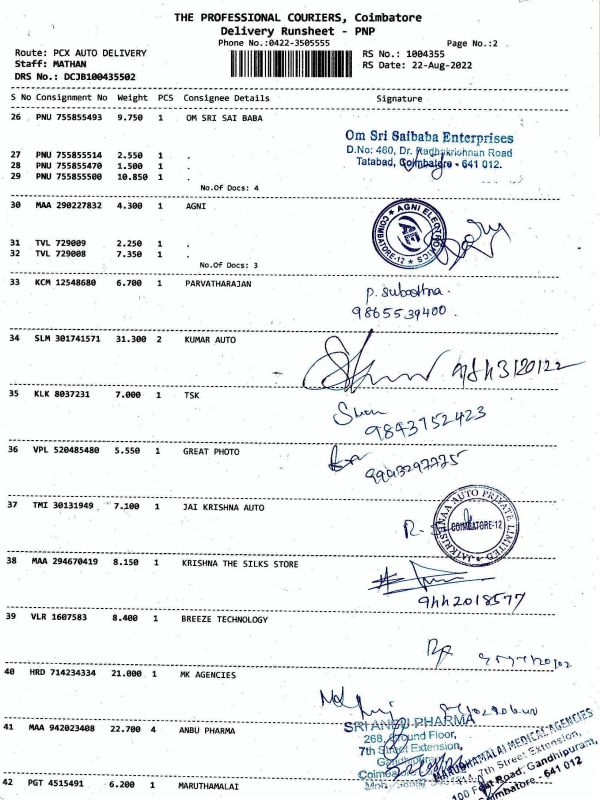 THE PROFESSIONAL COURIERS, Coimbatore
Delivery Runsheet - PNP
Phone No.:0422-3505555 Page No.:2
Route: PCX AUTO DELIVERY RS No.: 1004355
Staff: MATHAN RS Date: 22-Aug-2022
DRS No.: DCJB100435502
S No Consignment No Weight PCS Consignee Details Signature
26 PNU 755855493 9.750 1 OM SRI SAI BABA
Om Sri Saibaba Enterprises
D.No: 460, Dr. Radhakrishnan Road
Tatabad, Coimbatore - 641 012.
27 PNU 755855514 2.550 1 .
28 PNU 755855470 1.500 1 .
29 PNU 755855500 10.850 1 .
No.Of Docs: 4
30 MAA 290227832 4.300 1 AGNI
AGNI ELECTRONICS
COIMBATORE-12
31 TVL 729009 2.250 1 .
32 TVL 729008 7.350 1 .
No.Of Docs: 3
33 KCM 12548680 6.700 1 PARVATHARAJAN
9865539400.
34 SLM 301741571 31.300 2 KUMAR AUTO
35 KLK 8037231 7.000 1 TSK
9843752423
36 VPL 520485480 5.550 1 GREAT PHOTO
37 TMI 30131949 7.100 1 JAI KRISHNA AUTO
JAIKRISHNAA AUTO PRIVATE LIMITED
COIMBATORE-12
38 MAA 294670419 8.150 1 KRISHNA THE SILKS STORE
39 VLR 1607583 8.400 1 BREEZE TECHNOLOGY
40 HRD 714234334 21.000 1 MK AGENCIES
41 MAA 942023408 22.700 4 ANBU PHARMA
SRI ANBU PHARMA
268, Ground Floor,
7th Street Extension,
Gandhipuram,
MARUTHAMALAI MEDICAL AGENCIES
7th Street Extension,
100 Feet Road, Gandhipuram,
Coimbatore - 641 012
42 PGT 4515491 6.200 1 MARUTHAMALAI